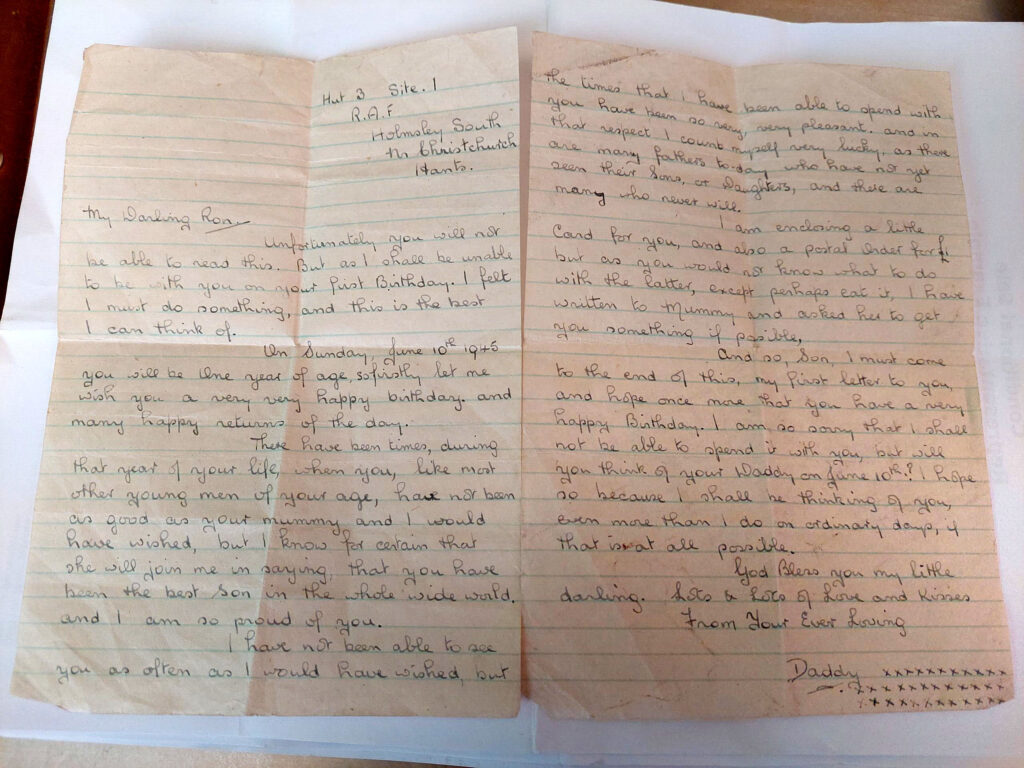 Hut 3 Site. 1
R.A.F
Holmsley South
Nr Christchurch
Hants.
My Darling Ron,
Unfortunately you will not
be able to read this. But as I shall be unable
to be with you on your first Birthday. I felt
I must do something, and this is the best
I can think of.
On Sunday, June 10th 1945
you will be One year of age, so firstly let me
wish you a very very happy birthday. and
many happy returns of the day.
There have been times, during
that year of your life, when you, like most
other young men of your age, have not been
as good as your mummy, and I would
have wished, but I know for certain that
she will join me in saying, that you have
been the best Son in the whole wide world.
and I am so proud of you.
I have not been able to see
you as often as I would have wished, but
the times that I have been able to spend with
you have been so very, very pleasant. and in
that respect I count myself very lucky, as there
are many fathers to-day who have not yet
seen their Sons, or Daughters, and there are
many who never will.
I am enclosing a little
Card for you, and also a postal Order for
but as you would not know what to do
with the latter, except perhaps eat it, I have
written to Mummy and asked her to get
you something if possible,
And so, Son, I must come
to the end of this, my first letter to you,
and hope once more that you have a very
happy Birthday. I am so sorry that I shall
not be able to spend it with you, but will
you think of your Daddy on June 10th.? I hope
so because I shall be thinking of you,
even more than I do on ordinary days, if
that is at all possible.
God Bless you my little
darling. Lots & Lots of Love and Kisses
From Your Ever Loving
Daddy xxxxxxxxxxx
xxxxxxxxxxxxx
xxxxxxxxxxxx